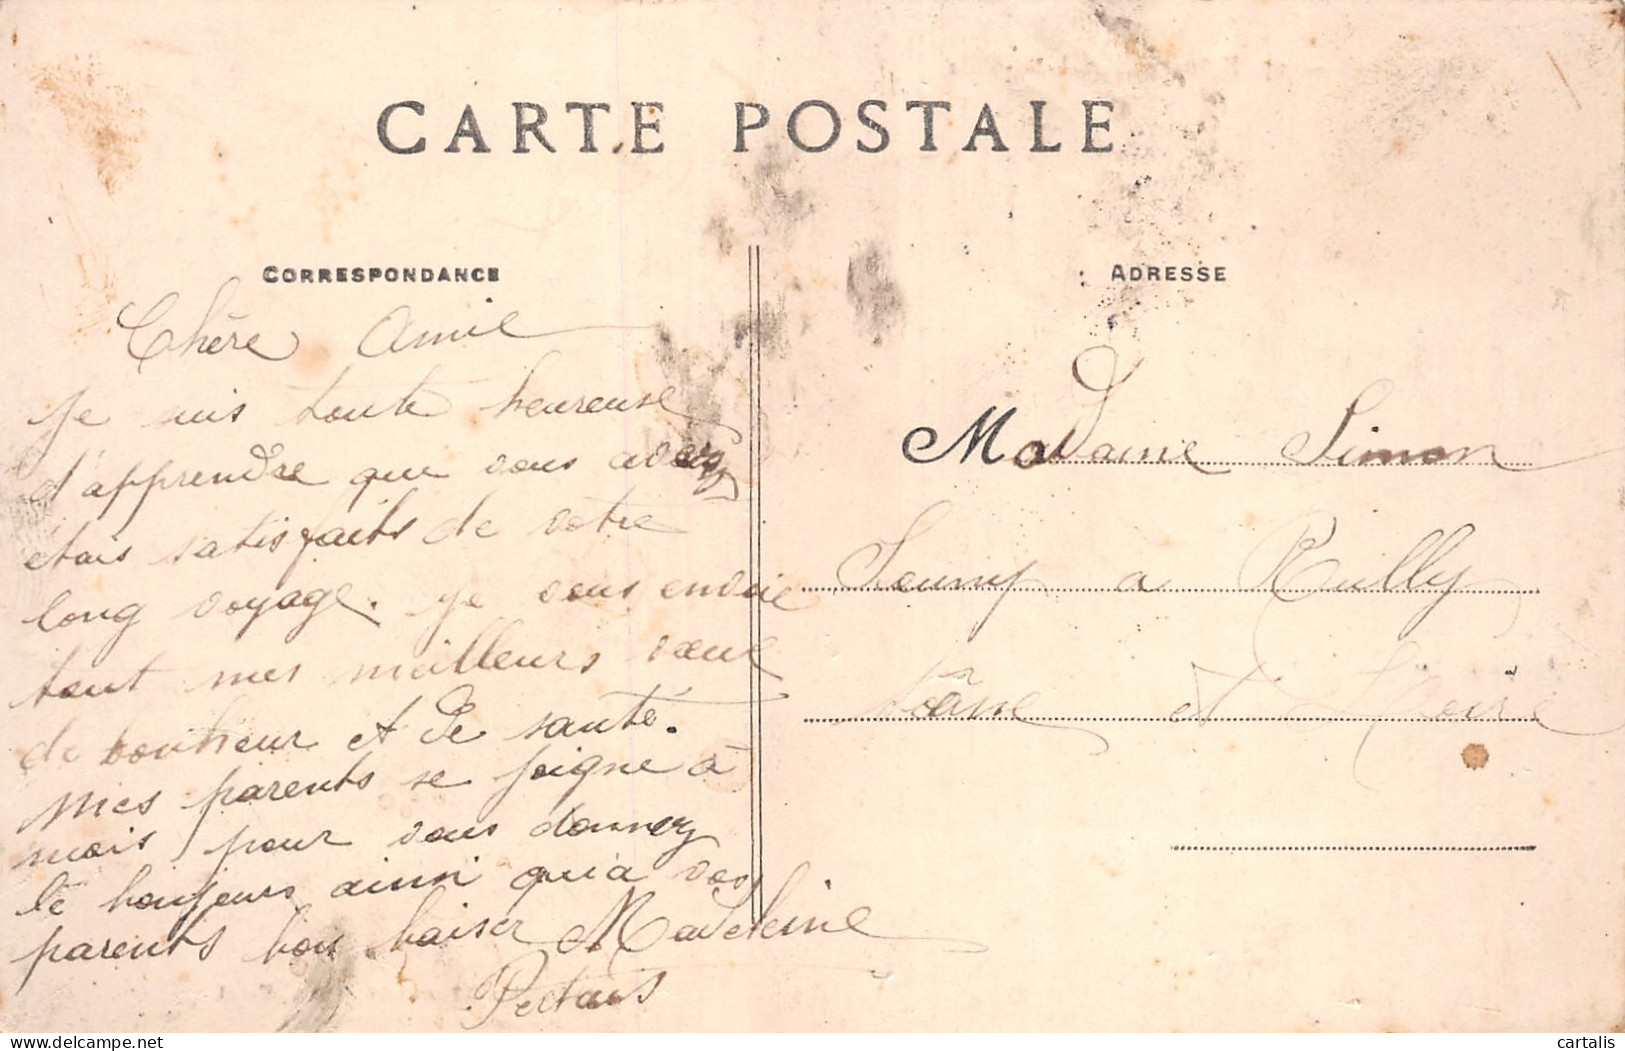 CARTE POSTALE
CORRESPONDANCE
Chère Amie
je suis toute heureuse
d'apprendre que vous avez
étais satisfaits de votre
long voyage. je vous envoie
tout mes meilleurs vœux
de bonheur et de santé.
Mes parents se joigne à
mois pour vous donnez
le bonjours ainsi qu'a vos
parents bon baiser Madeleine
ADRESSE
Madame Simon
a Rully
Saône et Loire
cartalis
delcampe.net